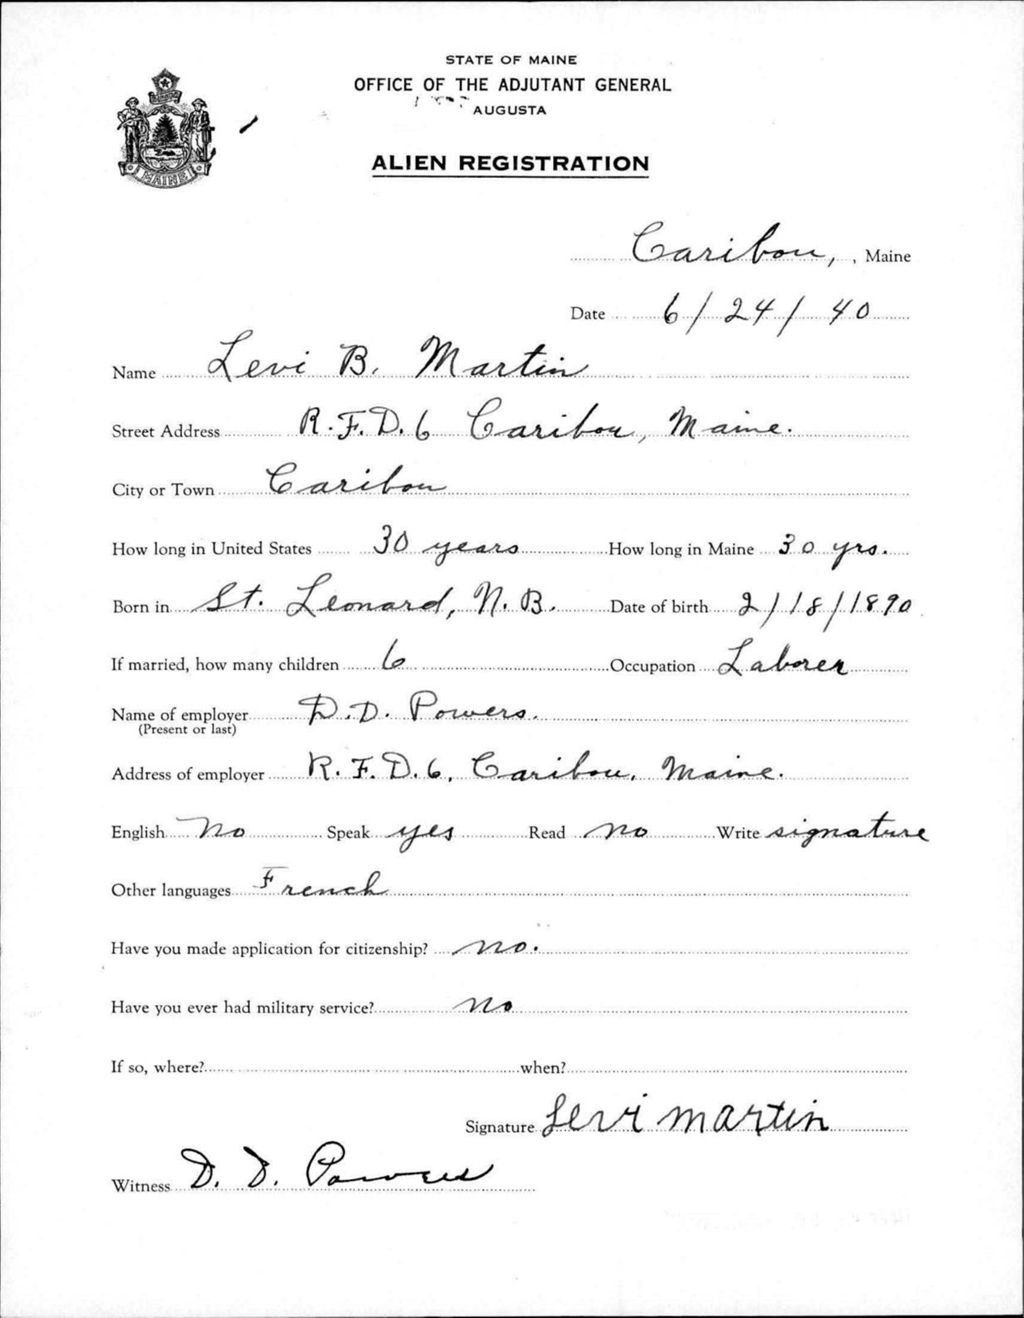 STATE OF MAINE
OFFICE OF THE ADJUTANT GENERAL
AUGUSTA
MAINE
ALIEN REGISTRATION
Caribou, , Maine
Date 6/24/40
Name Levi B. Martin
Street Address R.F.D. 6 Caribou, Maine.
City or Town Caribou
How long in United States 30 years How long in Maine 30 yrs.
Born in St. Leonard, N.B. Date of birth 2/18/1890
If married, how many children 6 Occupation Laborer
Name of employer D.D. Powers.
(Present or last)
Address of employer R.F.D. 6, Caribou, Maine.
English No Speak yes Read no Write signature
Other languages French
Have you made application for citizenship? no.
Have you ever had military service? no
If so, where? when?
Signature Levi Martin
Witness D. D. Powers